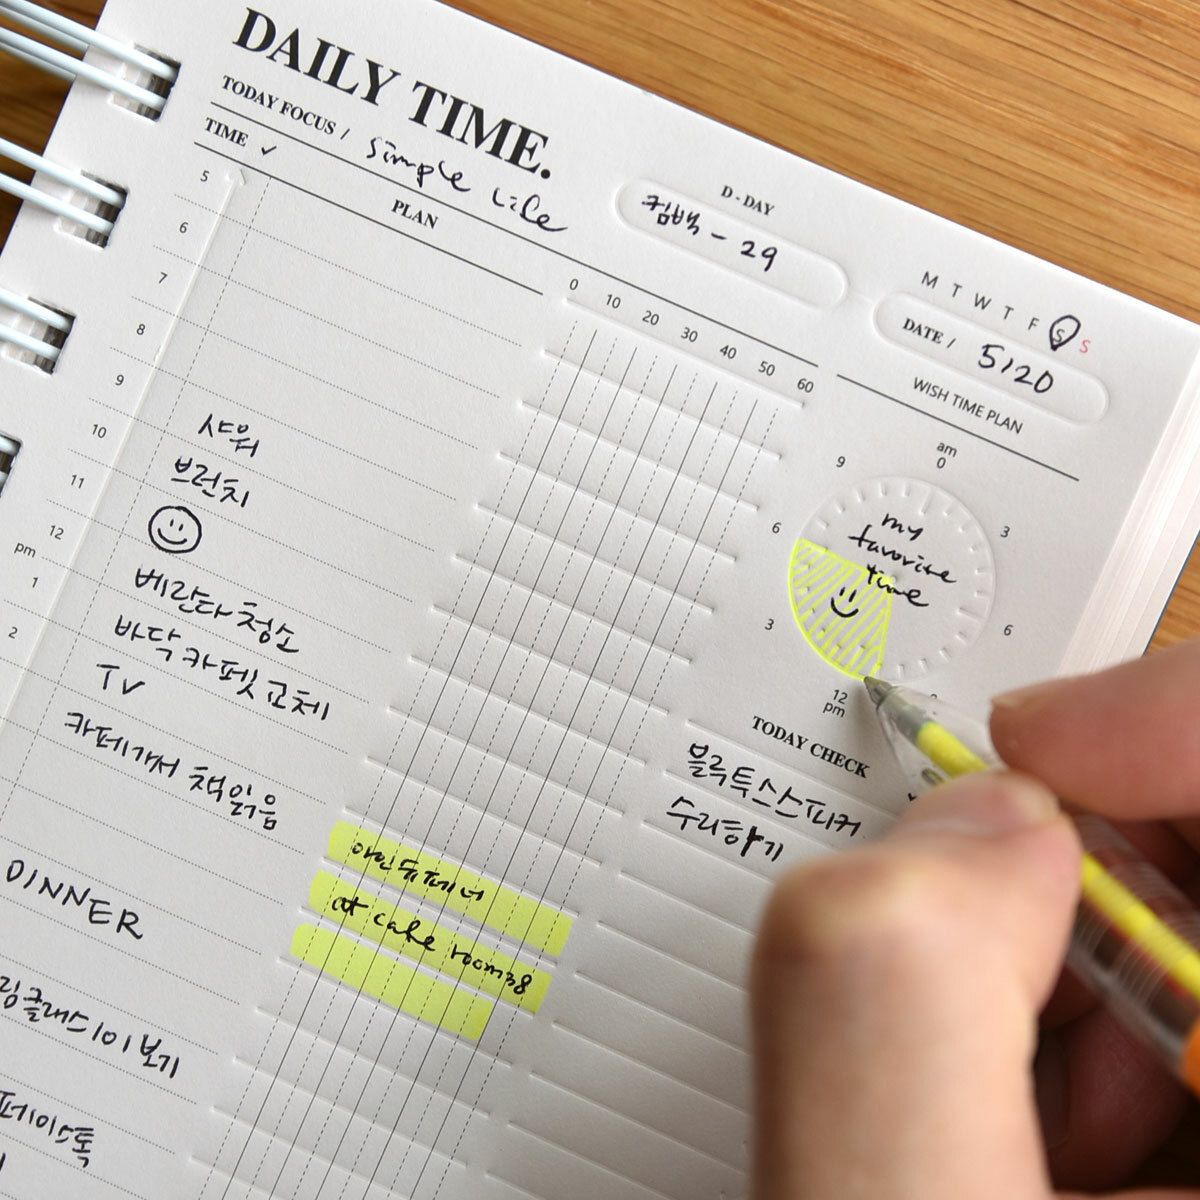 DAILY TIME.
TODAY FOCUS / simple life
TIME ✓
PLAN
D - DAY
컴백 - 29
M T W T F S S
DATE / 5/20
WISH TIME PLAN
0 10 20 30 40 50 60
5
6
7
8
9
10 샤워
11 브런치
12
pm
1 베란다 청소
2 바닥 카페트 교체
TV
카페가서 책읽음
at cafe room38
DINNER
클래스101 보기
am
0
3
6
9
12
pm
3
6
my
favorite
time
TODAY CHECK
블루투스스피커
수리하기